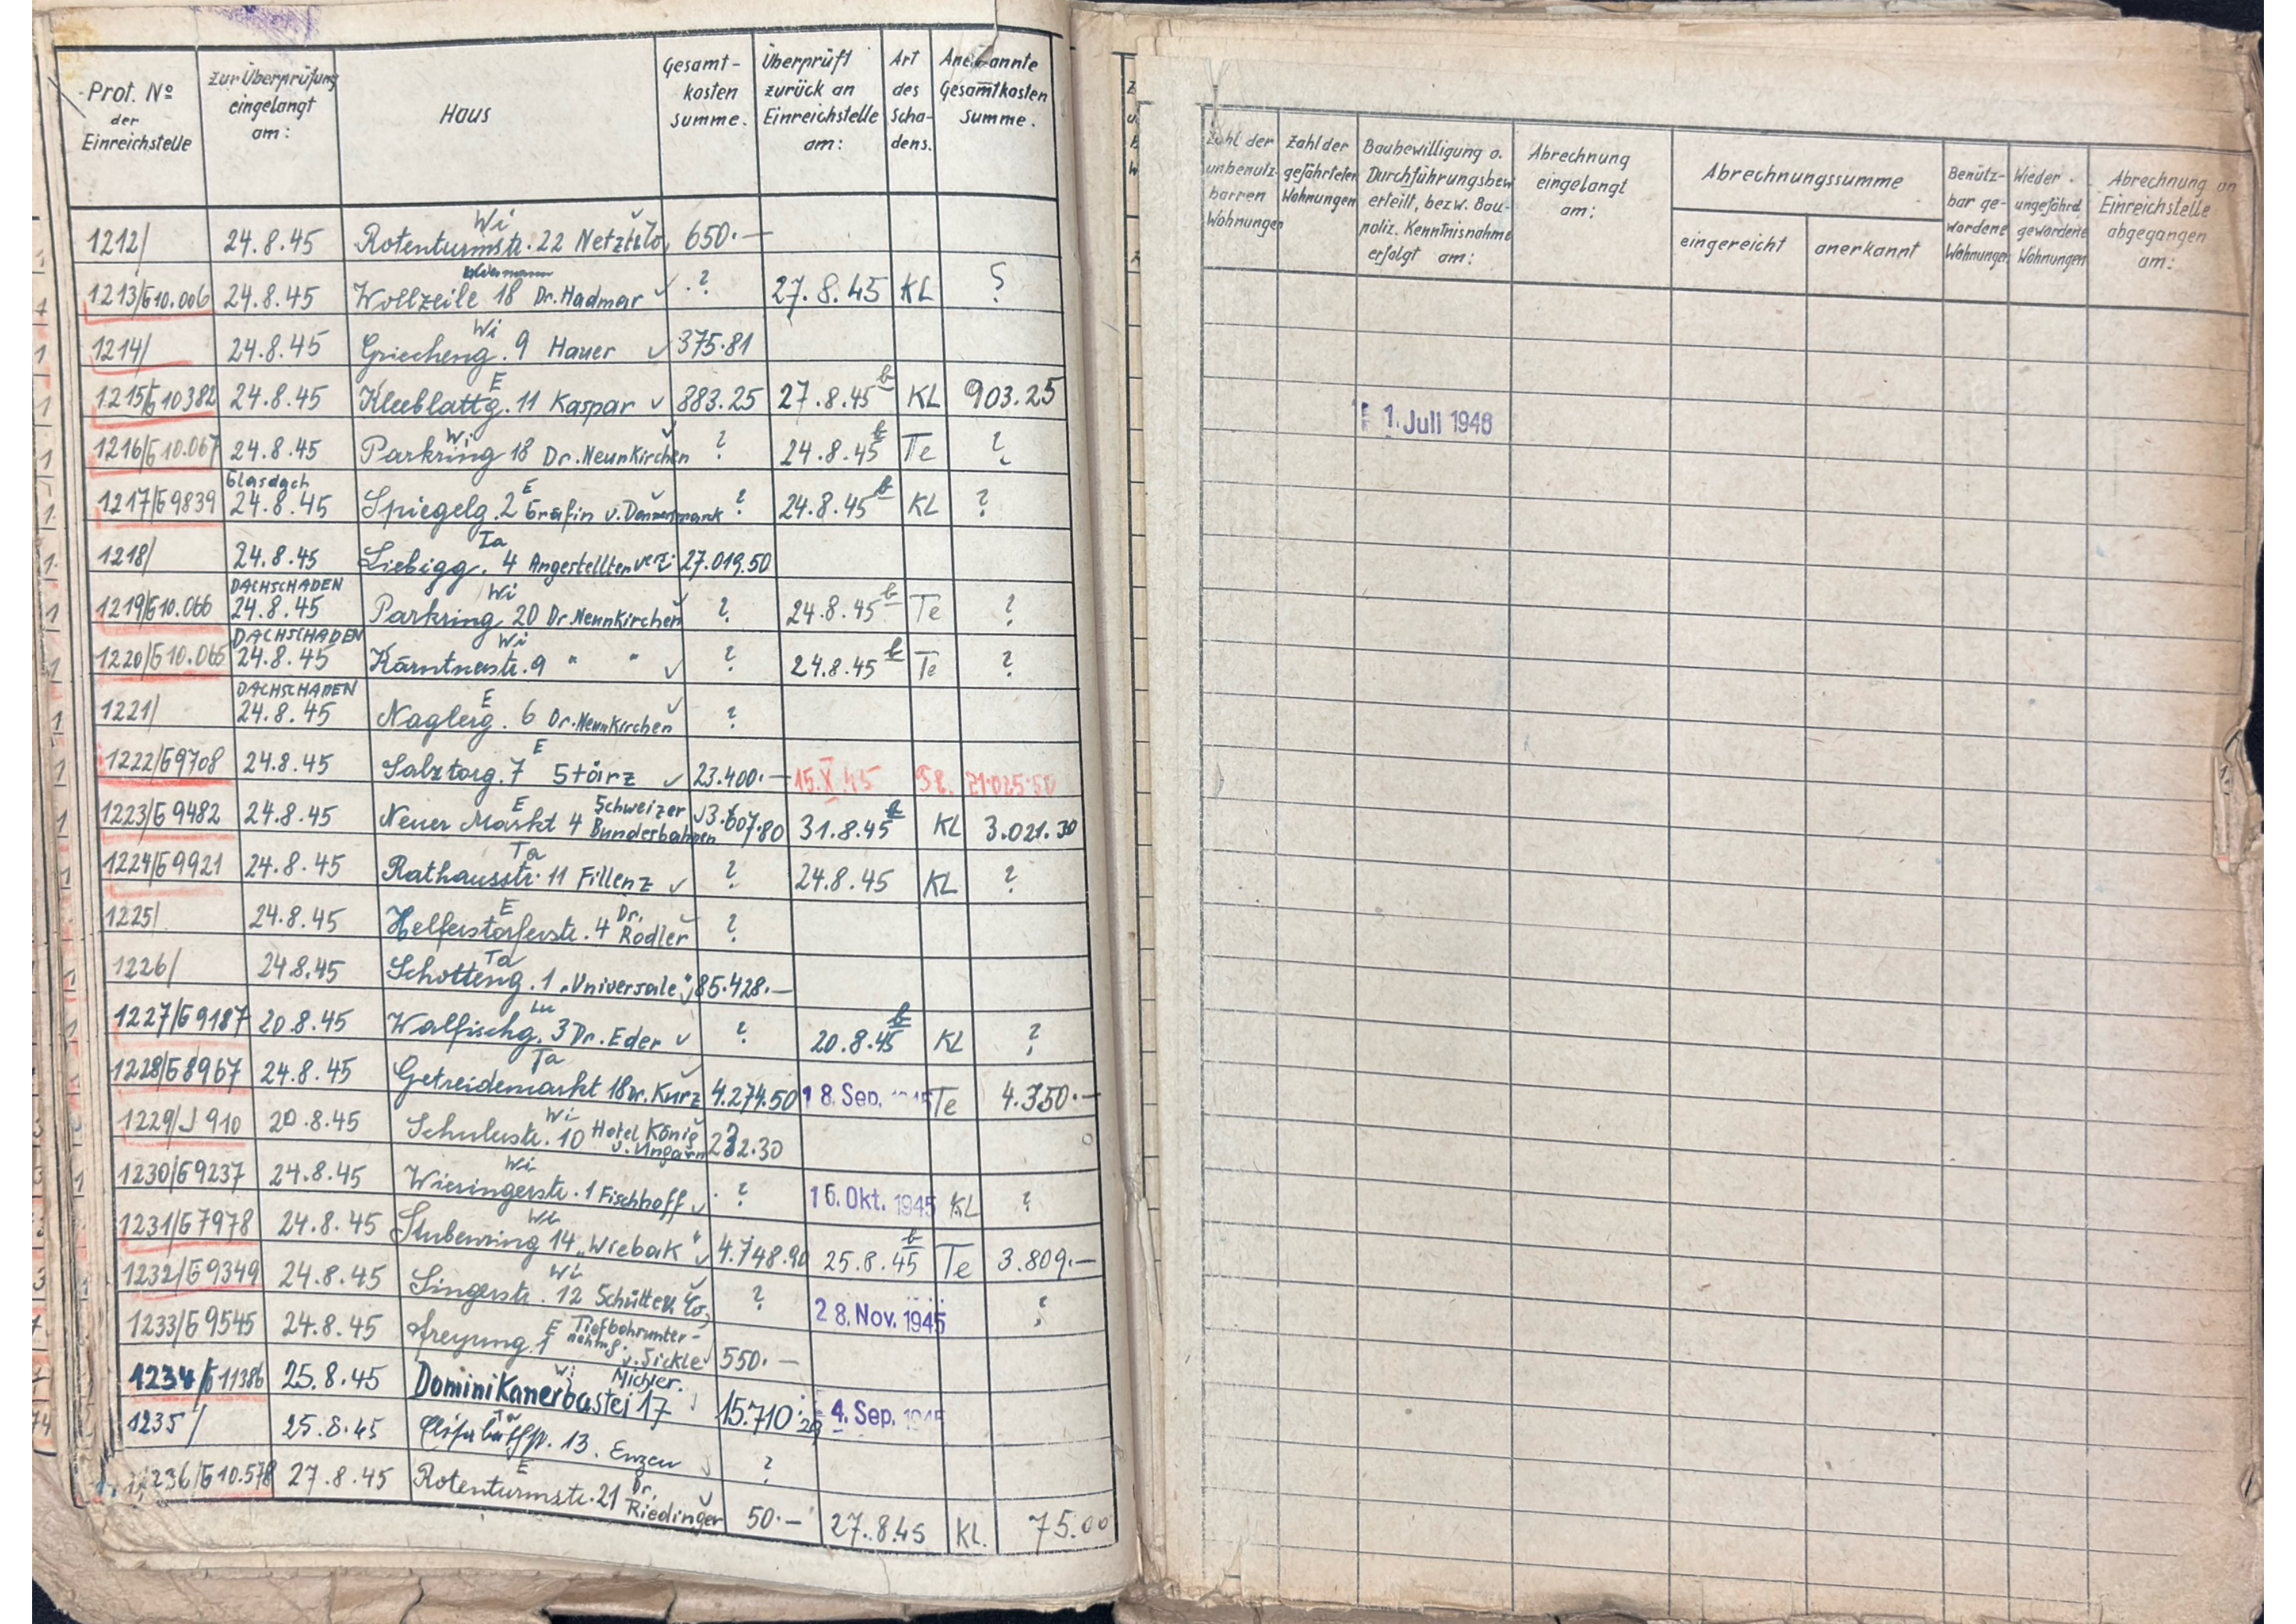 Prot. No der Einreichstelle
zur Überprüfung eingelangt am:
Haus
Gesamt-kosten summe.
Überprüft zurück an Einreichstelle am:
Art des Scha-dens.
Anerkannte Gesamtkosten Summe.
1212/ 24.8.45 Wi Rotenturmstr. 22 650.—
1213/G10.006 24.8.45 Wollzeile 18 Dr. Hadmar ✓ ? 27.8.45 KL ?
1214/ 24.8.45 Wi Griecheng. 9 Hauer ✓ 375.81
1215/G10382 24.8.45 E Kleeblattg. 11 Kaspar ✓ 883.25 27.8.45 KL 903.25
1216/G10.067 24.8.45 Wi Parkring 18 Dr. Neunkirchen ? 24.8.45 Te ?
1217/G9839 Glasdach 24.8.45 E Spiegelg. 2 Gräfin v. ? 24.8.45 KL ?
1218/ 24.8.45 Ta Liebigg. 4 Angestelltenvers. 27.019.50
1219/G10.066 DACHSCHADEN 24.8.45 Wi Parkring 20 Dr. Neunkirchen ? 24.8.45 Te ?
1220/G10.065 DACHSCHADEN 24.8.45 Wi Kärntnerstr. 9 " " ✓ ? 24.8.45 Te ?
1221/ DACHSCHADEN 24.8.45 E Naglerg. 6 Dr. Neunkirchen ?
1222/G9708 24.8.45 E Salztorg. 7 Störz ✓ 23.400.— 15.X.45 21.025.50
1223/G9482 24.8.45 E Neuer Markt 4 Schweizer Bundesbahnen 3.607.80 31.8.45 KL 3.021.30
1224/G9921 24.8.45 Ta Rathausstr. 11 Fillenz ✓ ? 24.8.45 KL ?
1225/ 24.8.45 E Helferstorferstr. 4 Dr. Rodler ?
1226/ 24.8.45 Ta Schotteng. 1 „Universale" 85.428.—
1227/G9187 20.8.45 Walfischg. 3 Dr. Eder ✓ ? 20.8.45 KL ?
1228/G8967 24.8.45 Ta Getreidemarkt 18 Dr. Kurz 4.274.50 18. Sep. 1945 Te 4.350.—
1229/J910 20.8.45 Wi Schulerstr. 10 Hotel König v. Ungarn 232.30
1230/G9237 24.8.45 Wi Wiesingerstr. 1 Fischhoff ✓ ? 16. Okt. 1945 KL ?
1231/G7978 24.8.45 Wi Stubenring 14 „Wiebak" ✓ 4.748.90 25.8.45 Te 3.809.—
1232/G9349 24.8.45 Wi Singerstr. 12 Schütten Co, ? 28. Nov. 1945 ?
1233/G9545 24.8.45 E Freyung 1 Tiefbohrunter-nehmg. v. Sickle 550.—
1234/G11386 25.8.45 Wi Dominikanerbastei 17 Michler. 15.710.29 4. Sep. 1945
1235/ 25.8.45 13. Enzen ?
1236/G10.578 27.8.45 E Rotenturmstr. 21 Dr. Riedinger 50.— 27.8.45 KL. 75.00
Zahl der unbenutz-barren Wohnungen
Zahl der gefährteten Wohnungen
Baubewilligung o. Durchführungsbew. erteilt, bezw. Bau-poliz. Kenntnisnahme erfolgt am:
Abrechnung eingelangt am:
Abrechnungssumme
eingereicht
anerkannt
Benütz-bar ge-wordene Wohnungen
Wieder ungefährd. gewordene Wohnungen
Abrechnung an Einreichstelle abgegangen am:
1. Juli 1946